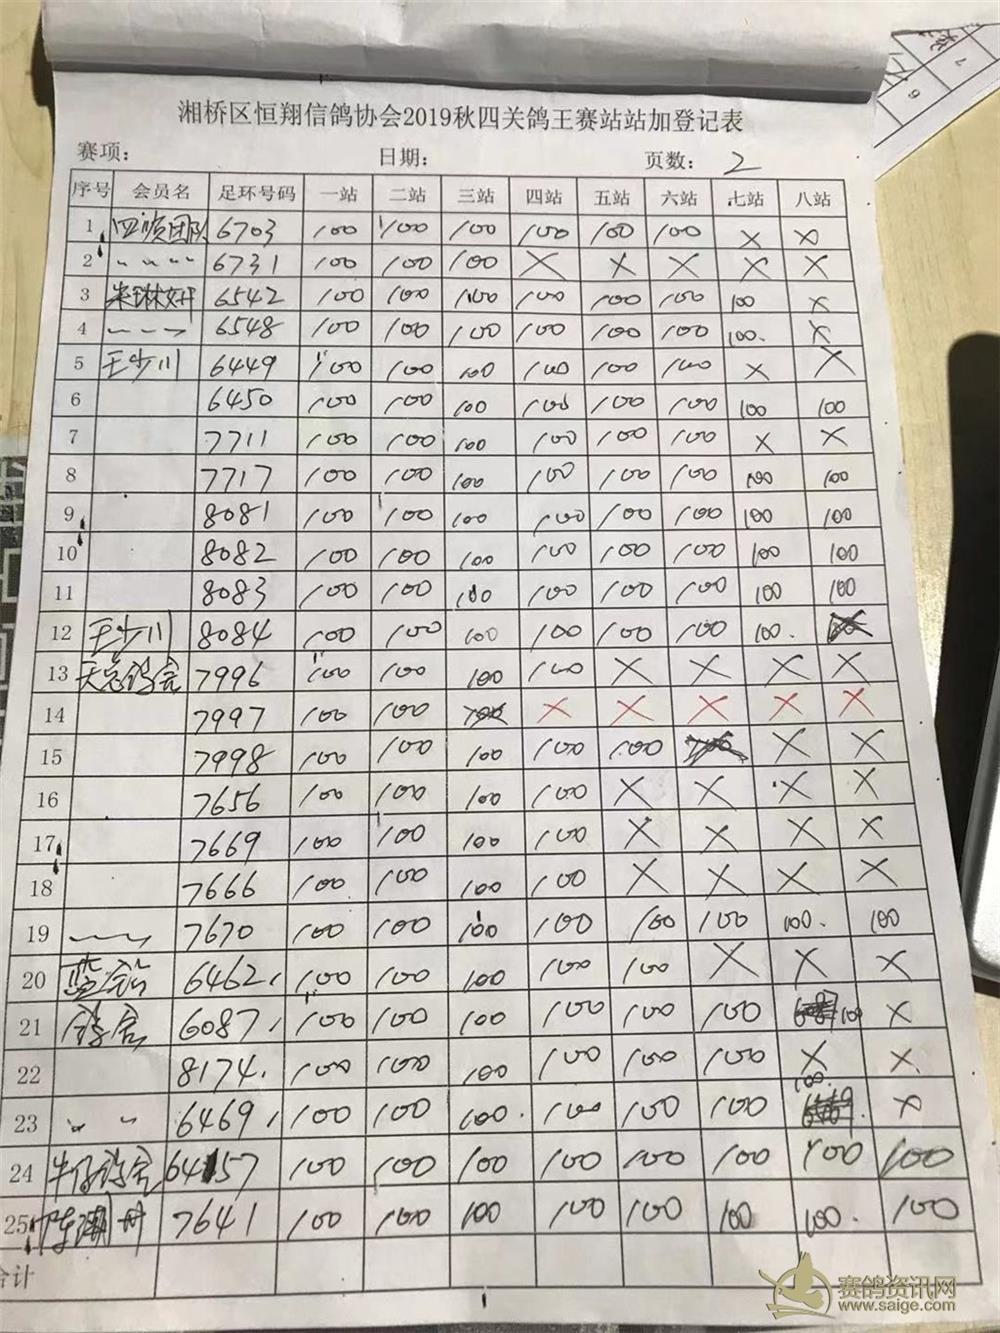 湘桥区恒翔信鸽协会2019秋四关鸽王赛站站加登记表
赛项： 日期： 页数：2
序号 会员名 足环号码 一站 二站 三站 四站 五站 六站 七站 八站
1 团队 6703 100 100 100 100 100 100 × ×
2 〃 〃 〃 〃 6731 100 100 100 × × × × ×
3 朱琳妍 6542 100 100 100 100 100 100 100 ×
4 6548 100 100 100 100 100 100 100. ×
5 王少川 6449 100 100 100 100 100 100 × ×
6 6450 100 100 100 100 100 100 100 100
7 7711 100 100 100 100 100 100 × ×
8 7717 100 100 100 100 100 100 100 100
9 8081 100 100 100 100 100 100 100 100
10 8082 100 100 100 100 100 100 100 100
11 8083 100 100 100 100 100 100 100 100
12 王少川 8084 100 100 100 100 100 100 100.
13 鸽舍 7996 100 100 100 100 × × × ×
14 7997 100 100 100 × × × × ×
15 7998 100 100 100 100 100 × ×
16 7656 100 100 100 100 × × × ×
17 7669 100 100 100 100 × × × ×
18 7666 100 100 100 100 × × × ×
19 7670 100 100 100 100 100 100 100. 100
20 6462. 100 100 100 100 100 × × ×
21 鸽舍 6087. 100 100 100 100 100 100 100 ×
22 8174. 100 100 100 100 100 100 × ×
23 〃 〃 6469. 100 100 100. 100 100 100 100. ×
24 牛仔鸽舍 6457 100 100 100 100 100 100 100 100
25 陈潮州 7641 100 100 100 100 100 100 100. 100
合计
赛鸽资讯网
www.saige.com